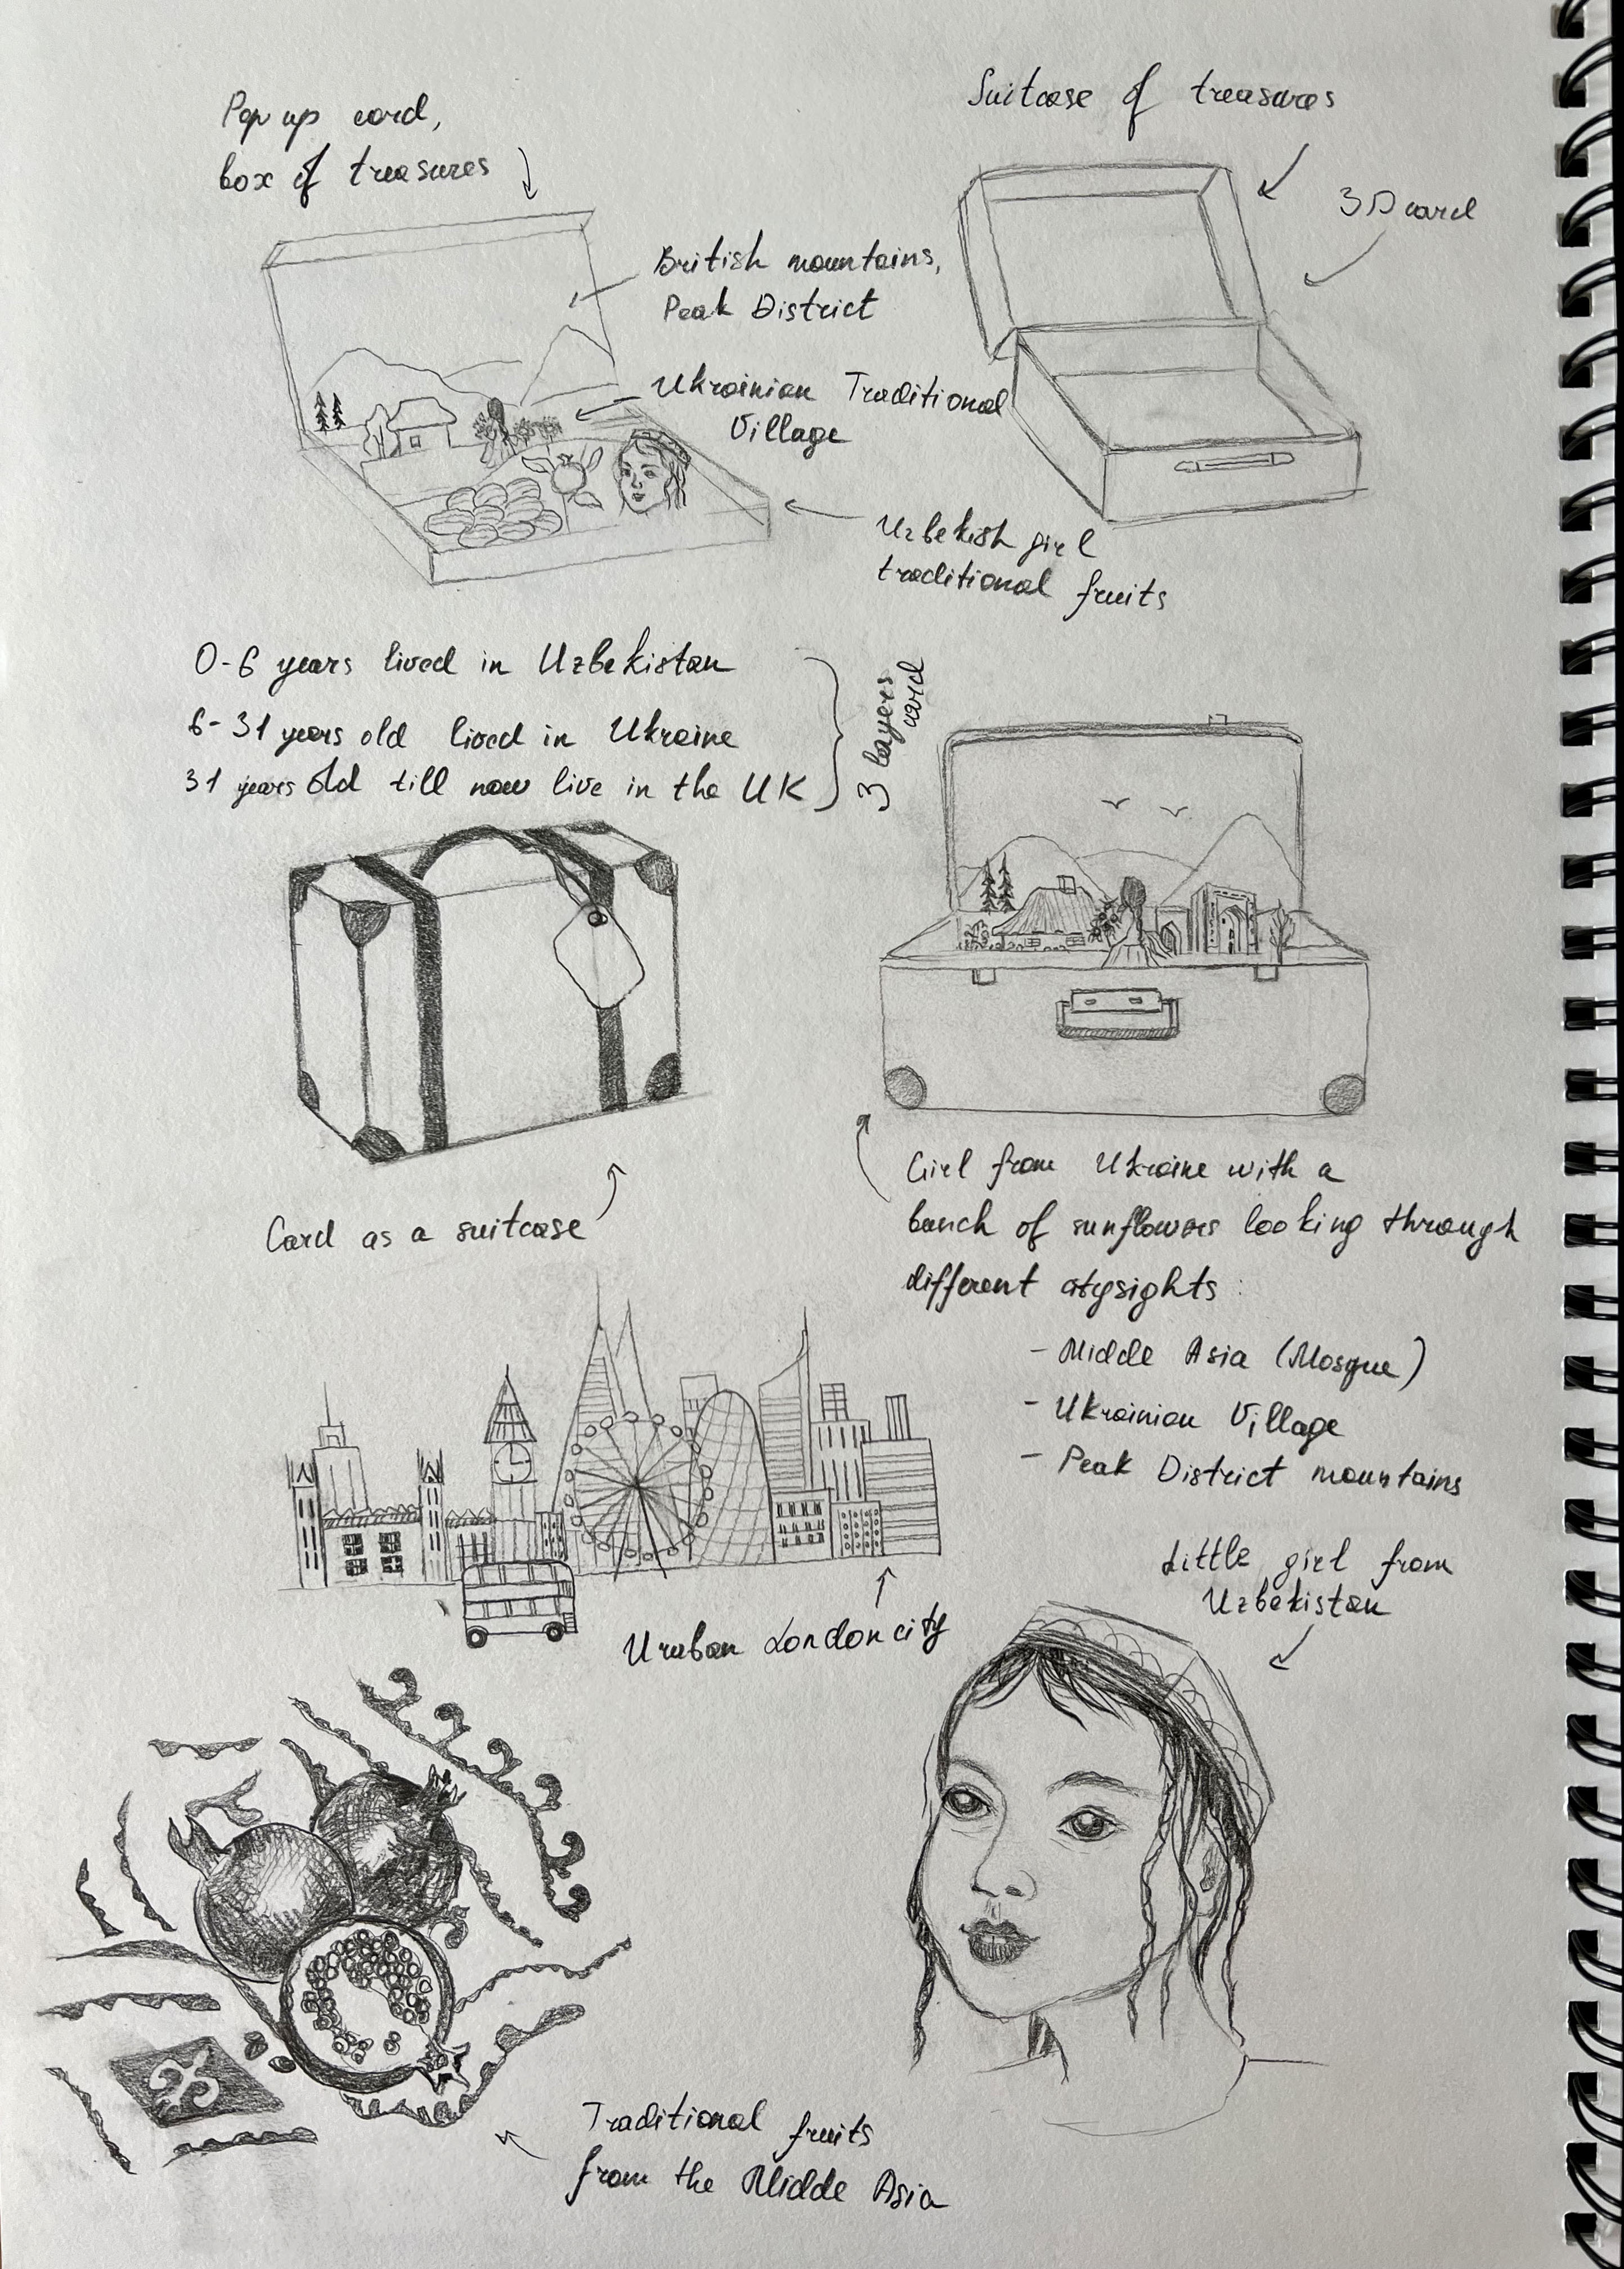 Pop up card,
box of treasures
Suitcase of treasures
3D card
British mountains,
Peak District
Ukrainian Traditional
Village
Uzbekish girl
traditional fruits
0-6 years lived in Uzbekistan
6-31 years old lived in Ukraine
31 years old till now live in the UK
3 layers
card
Card as a suitcase
Girl from Ukraine with a
bunch of sunflowers looking through
different citysights:
- Middle Asia (Mosque)
- Ukrainian Village
- Peak District mountains
Uruban London city
Little girl from
Uzbekistan
Traditional fruits
from the Midde Asia